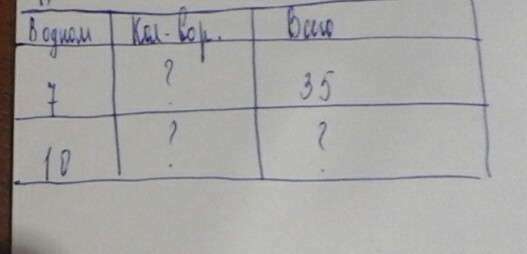 В одном Кол-вор. Всего
7 ? 35
10 ? ?